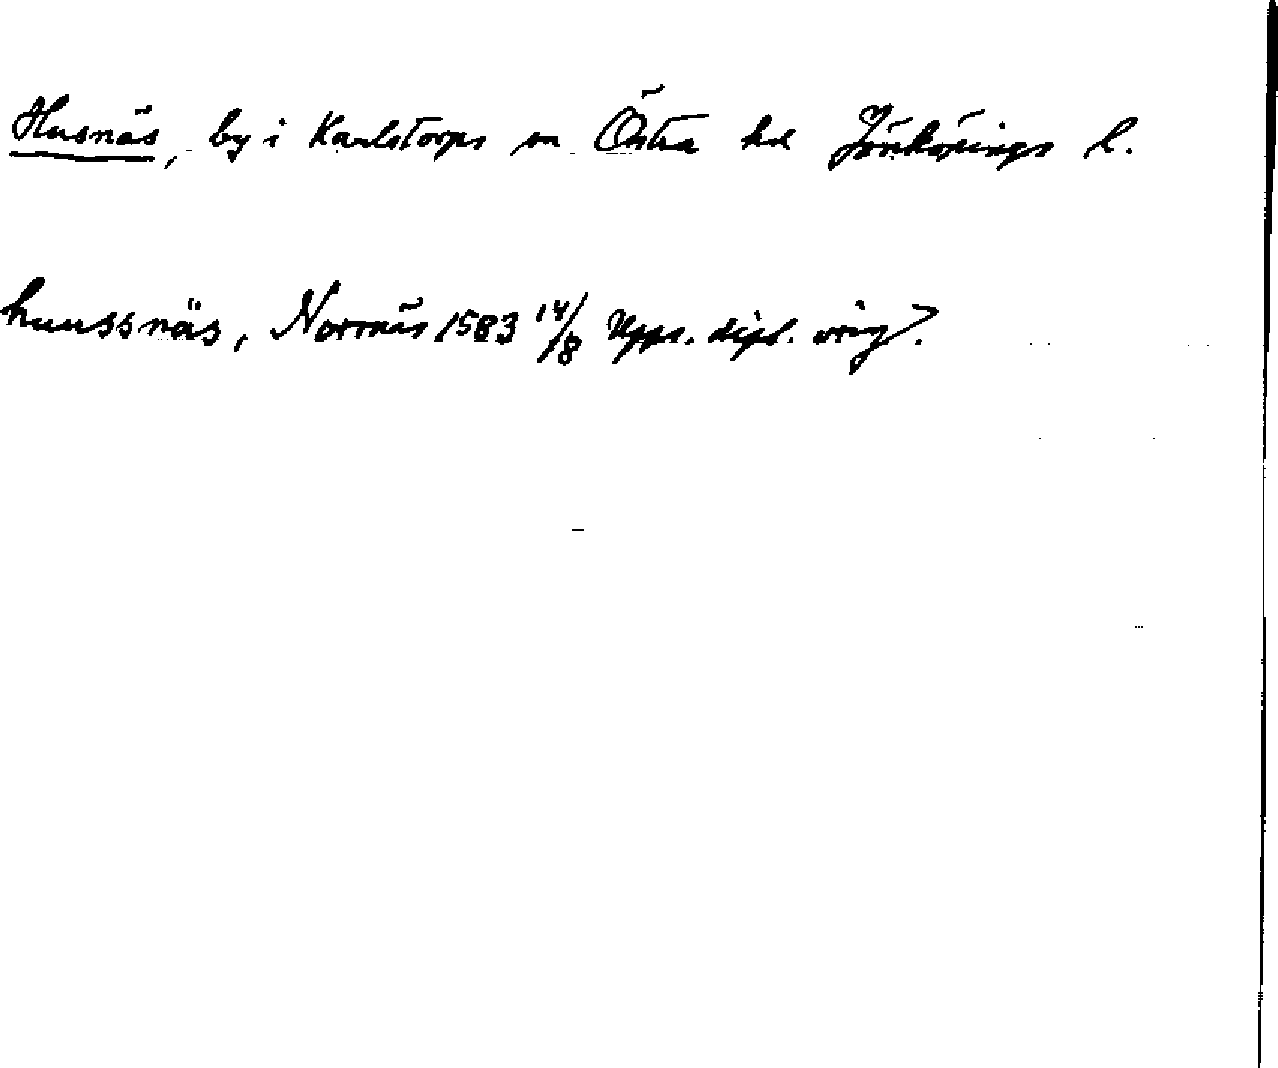 Husnäs, by i Karlstorps sn Östra hd Jönköpings l.
huussnäs, Norrnäs 1583 14/8 Upps. dipl. orig.